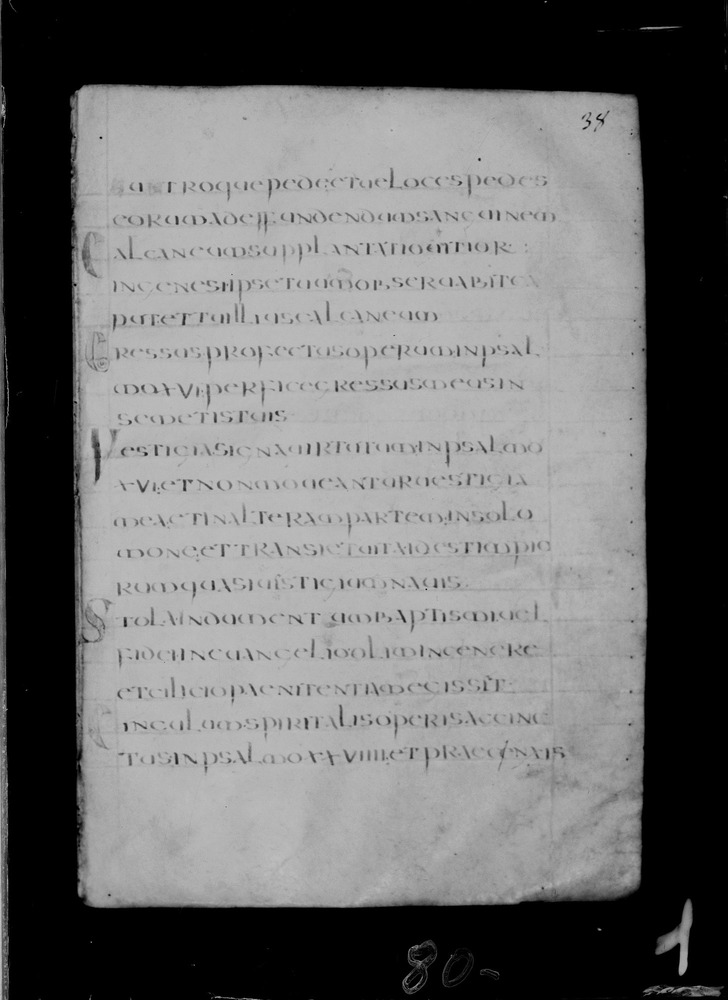 38
utroque pede et veloces pedes
eorum ad effundendum sanguinem
Calcaneum supplantatio mor
in genesi ipse tuum observabit ca
put et tu illius calcaneum
Gressus profectus operum in psal
mo xvi perfice gressus meos in
semetis tuis
Vestigia signa virtutum in psalmo
xvi et non moveantur vestigia
mea et in alteram partem in solo
mone et transiet vita vestra impio
rum quasi vestigium navis
Stola indumentum baptismi vel
fidei in evangelio olim in cenere
et cilicio paenitentiam egissent
Cingulum spiritalis operis accinc
tus in psalmo xxviiii et praecinxis
80-
1